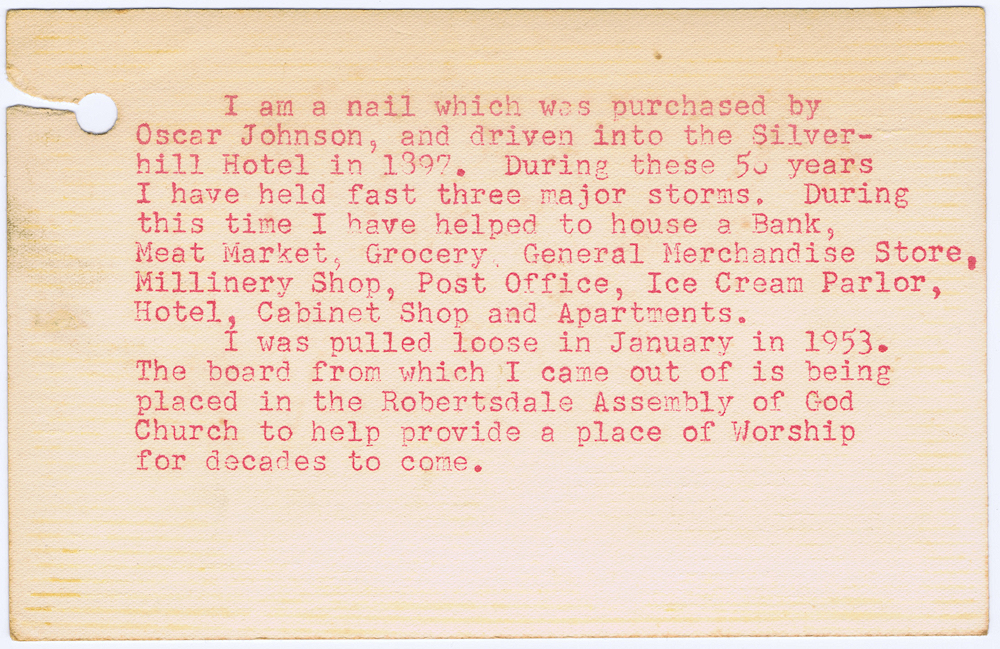 I am a nail which was purchased by
Oscar Johnson, and driven into the Silver-
hill Hotel in 1897. During these years
I have held fast three major storms. During
this time I have helped to house a Bank,
Meat Market, Grocery, General Merchandise Store,
Millinery Shop, Post Office, Ice Cream Parlor,
Hotel, Cabinet Shop and Apartments.
I was pulled loose in January in 1953.
The board from which I came out of is being
placed in the Robertsdale Assembly of God
Church to help provide a place of Worship
for decades to come.